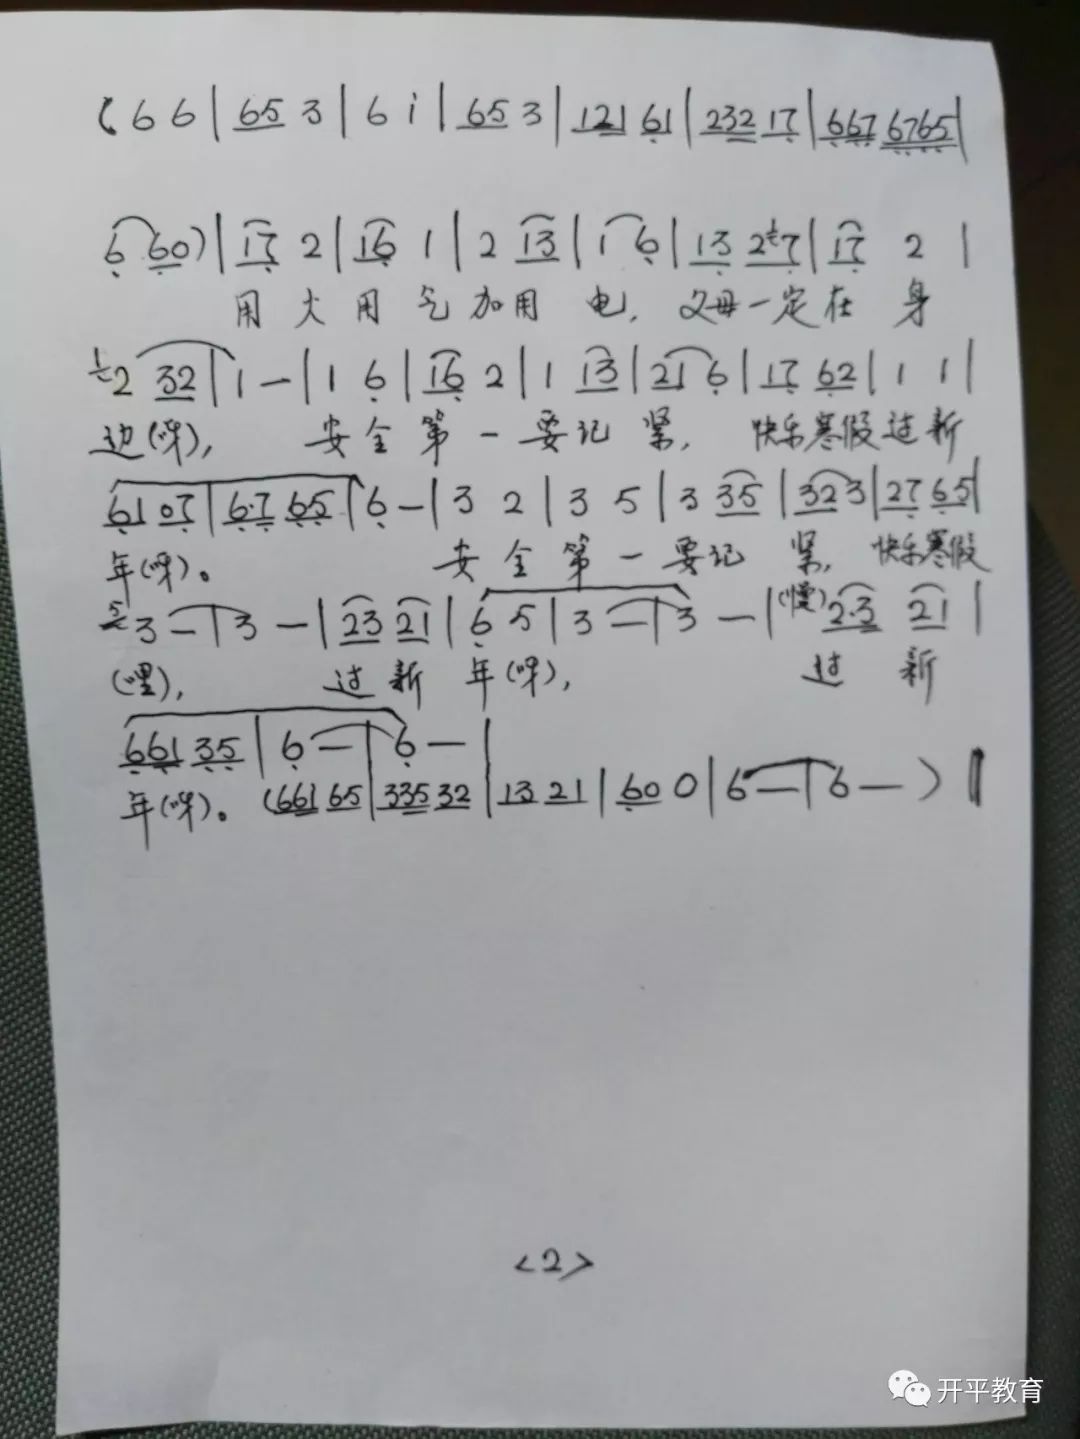 ( 6 6 | 65 3 | 6 i | 65 3 | 121 61 | 232 17 | 667 6765 |
6 60) | 17 2 | 16 1 | 2 13 | 1 6 | 13 2 7 | 17 2 |
用火用气加用电, 父母一定在身
2 32 | 1 — | 1 6 | 16 2 | 1 13 | 21 6 | 17 62 | 1 1 |
边(呀), 安全第一要记紧, 快乐寒假过新
61 07 | 6·7 65 | 6 — | 3 2 | 3 5 | 3 35 | 32 3 | 27 65 |
年(呀)。 安全第一要记紧, 快乐寒假
3 — | 3 — | 23 21 | 6 5 | 3 — | 3 — | (慢) 2·3 21 |
(哩), 过新年(呀), 过新
661 35 | 6 — | 6 — |
年(呀)。 (661 65 | 335 32 | 13 21 | 60 0 | 6 — | 6 — ) ‖
<2>
开平教育